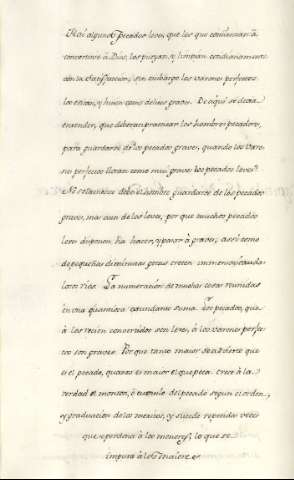 Hai algunos Pecados leves, que los que comienzan â
convertirse â Dios, los purgan, y limpian cotidianamente
con la satisfaccion, sin embargo los varones perfectos
los evitan, y huien como de los graves. De aqui se deja
entender, que deberan practicar los hombres pecadores,
para guardarse de los pecados graves, quando los Varo-
nes perfectos lloran como mui graves los pecados leves?
No solamente debe el hombre guardarse de los pecados
graves, mas aun de los leves, por que muchos pecados
leves disponen hâ hacer, y parar â graves, assi como
de pequeñas diminutas gotas creten inmensos
los Rios. La numeracion de muchas cosas reunidas
en una quantiosa abundante suma. Los pecados, que
â los recien convertidos son leves, â los varones perfec-
tos son graves. Por que tanto maior se hâ de creer que
es el pecado, quanto es maior el que peca crece â la
verdad el monton, ô cumulo del pecado segun el orden,
y graduacion de los meritos, y sucede repetidas veces
que se perdona â los menores, lo que se
imputa â los maiores